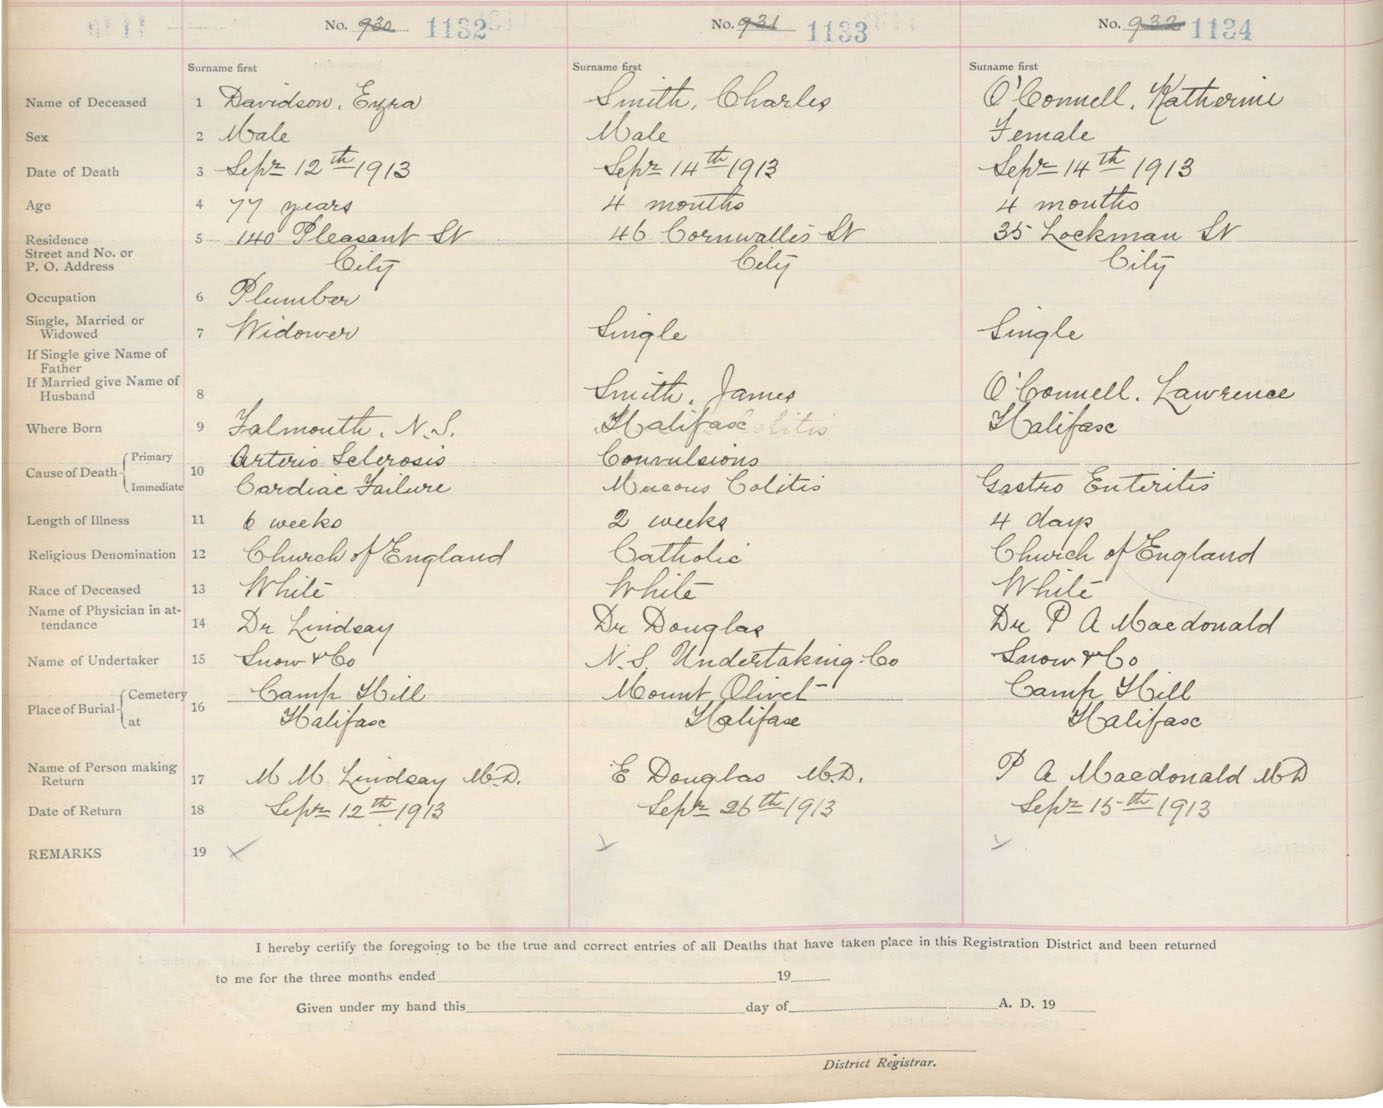 No. 930 1132 No. 931 1133 No. 932 1134
Surname first Surname first Surname first
Name of Deceased 1 Davidson, Ezra Smith, Charles O'Connell, Katherine
Sex 2 Male Male Female
Date of Death 3 Sepr 12th 1913 Sepr 14th 1913 Sepr 14th 1913
Age 4 77 years 4 months 4 months
Residence 5 140 Pleasant St 46 Cornwallis St 35 Lockman St
Street and No. or
P. O. Address City City City
Occupation 6 Plumber
Single, Married or
Widowed 7 Widower Single Single
If Single give Name of
Father
If Married give Name of
Husband 8 Smith, James O'Connell, Lawrence
Where Born 9 Falmouth, N.S. Halifax Colitis Halifax
Cause of Death Primary 10 Arterio Sclerosis Convulsions
Immediate Cardiac Failure Mucous Colitis Gastro Enteritis
Length of Illness 11 6 weeks 2 weeks 4 days
Religious Denomination 12 Church of England Catholic Church of England
Race of Deceased 13 White White White
Name of Physician in at-
tendance 14 Dr Lindsay Dr Douglas Dr P A Macdonald
Name of Undertaker 15 Snow & Co N.S. Undertaking Co Snow & Co
Place of Burial Cemetery 16 Camp Hill Mount Olivet Camp Hill
at Halifax Halifax Halifax
Name of Person making
Return 17 M M Lindsay M.D. E Douglas M.D. P A Macdonald MD
Date of Return 18 Sepr 12th 1913 Sepr 26th 1913 Sepr 15th 1913
REMARKS 19
I hereby certify the foregoing to be the true and correct entries of all Deaths that have taken place in this Registration District and been returned
to me for the three months ended 19
Given under my hand this day of A. D. 19
District Registrar.